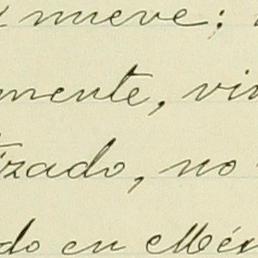 y nueve:
mente, vi
izado, no
do en Méx